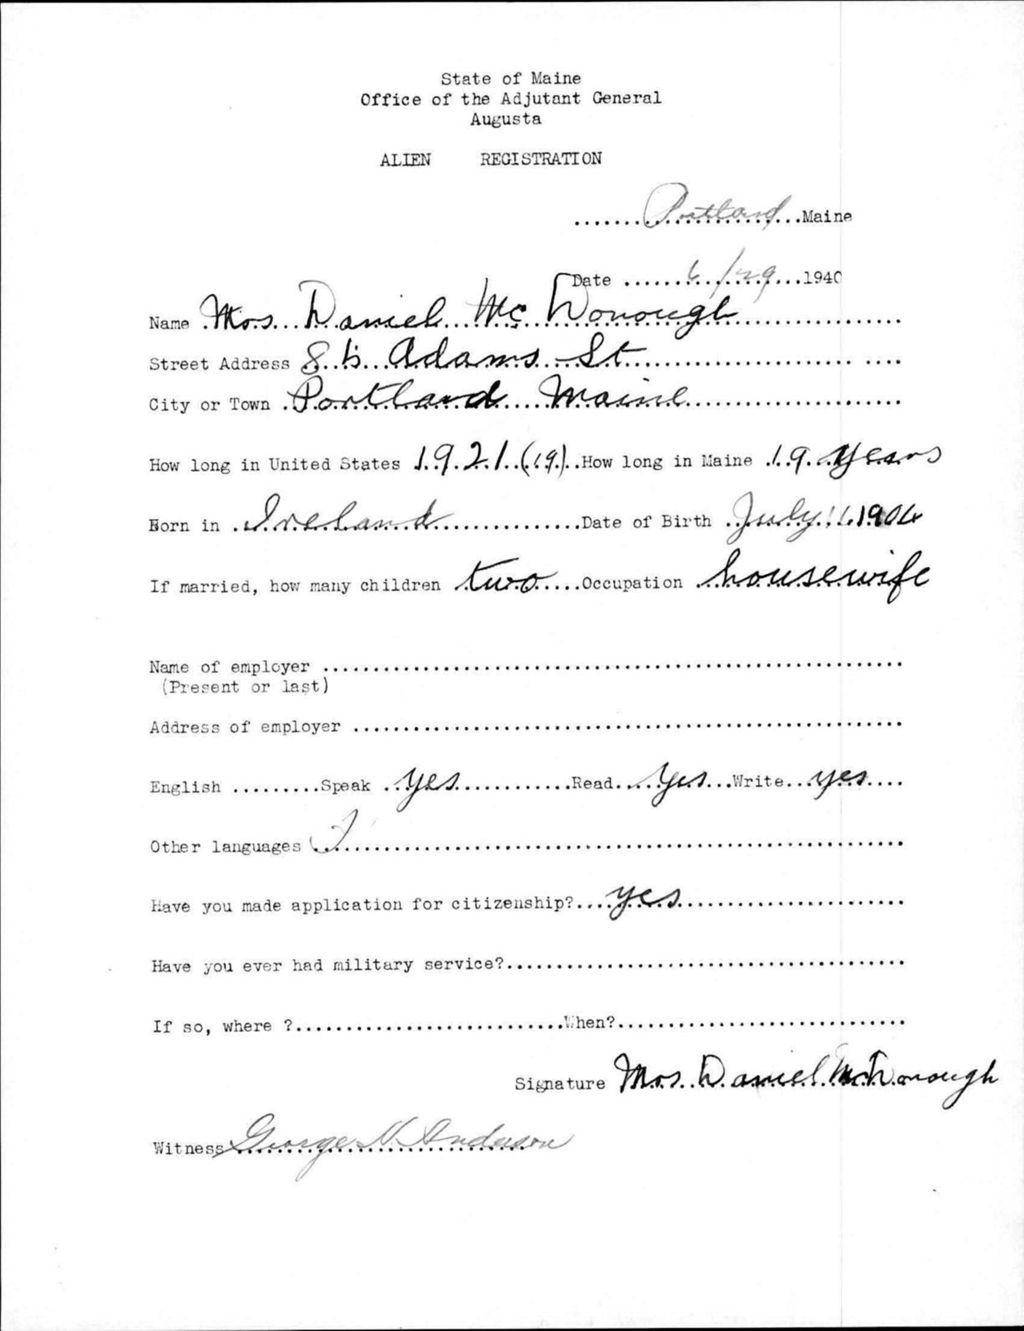 State of Maine
Office of the Adjutant General
Augusta
ALIEN REGISTRATION
.......Portland...Maine
Date ......6/29...1940
Name Mrs. Daniel McDonough
Street Address Adams St
City or Town Portland Maine
How long in United States 1921 (19) How long in Maine 19 years
Born in Ireland Date of Birth July 11
If married, how many children two Occupation housewife
Name of employer
(Present or last)
Address of employer
English .........Speak yes Read yes Write yes
Other languages
Have you made application for citizenship? yes
Have you ever had military service?
If so, where ? When?
Signature Mrs. Daniel McDonough
Witness George N. Anderson